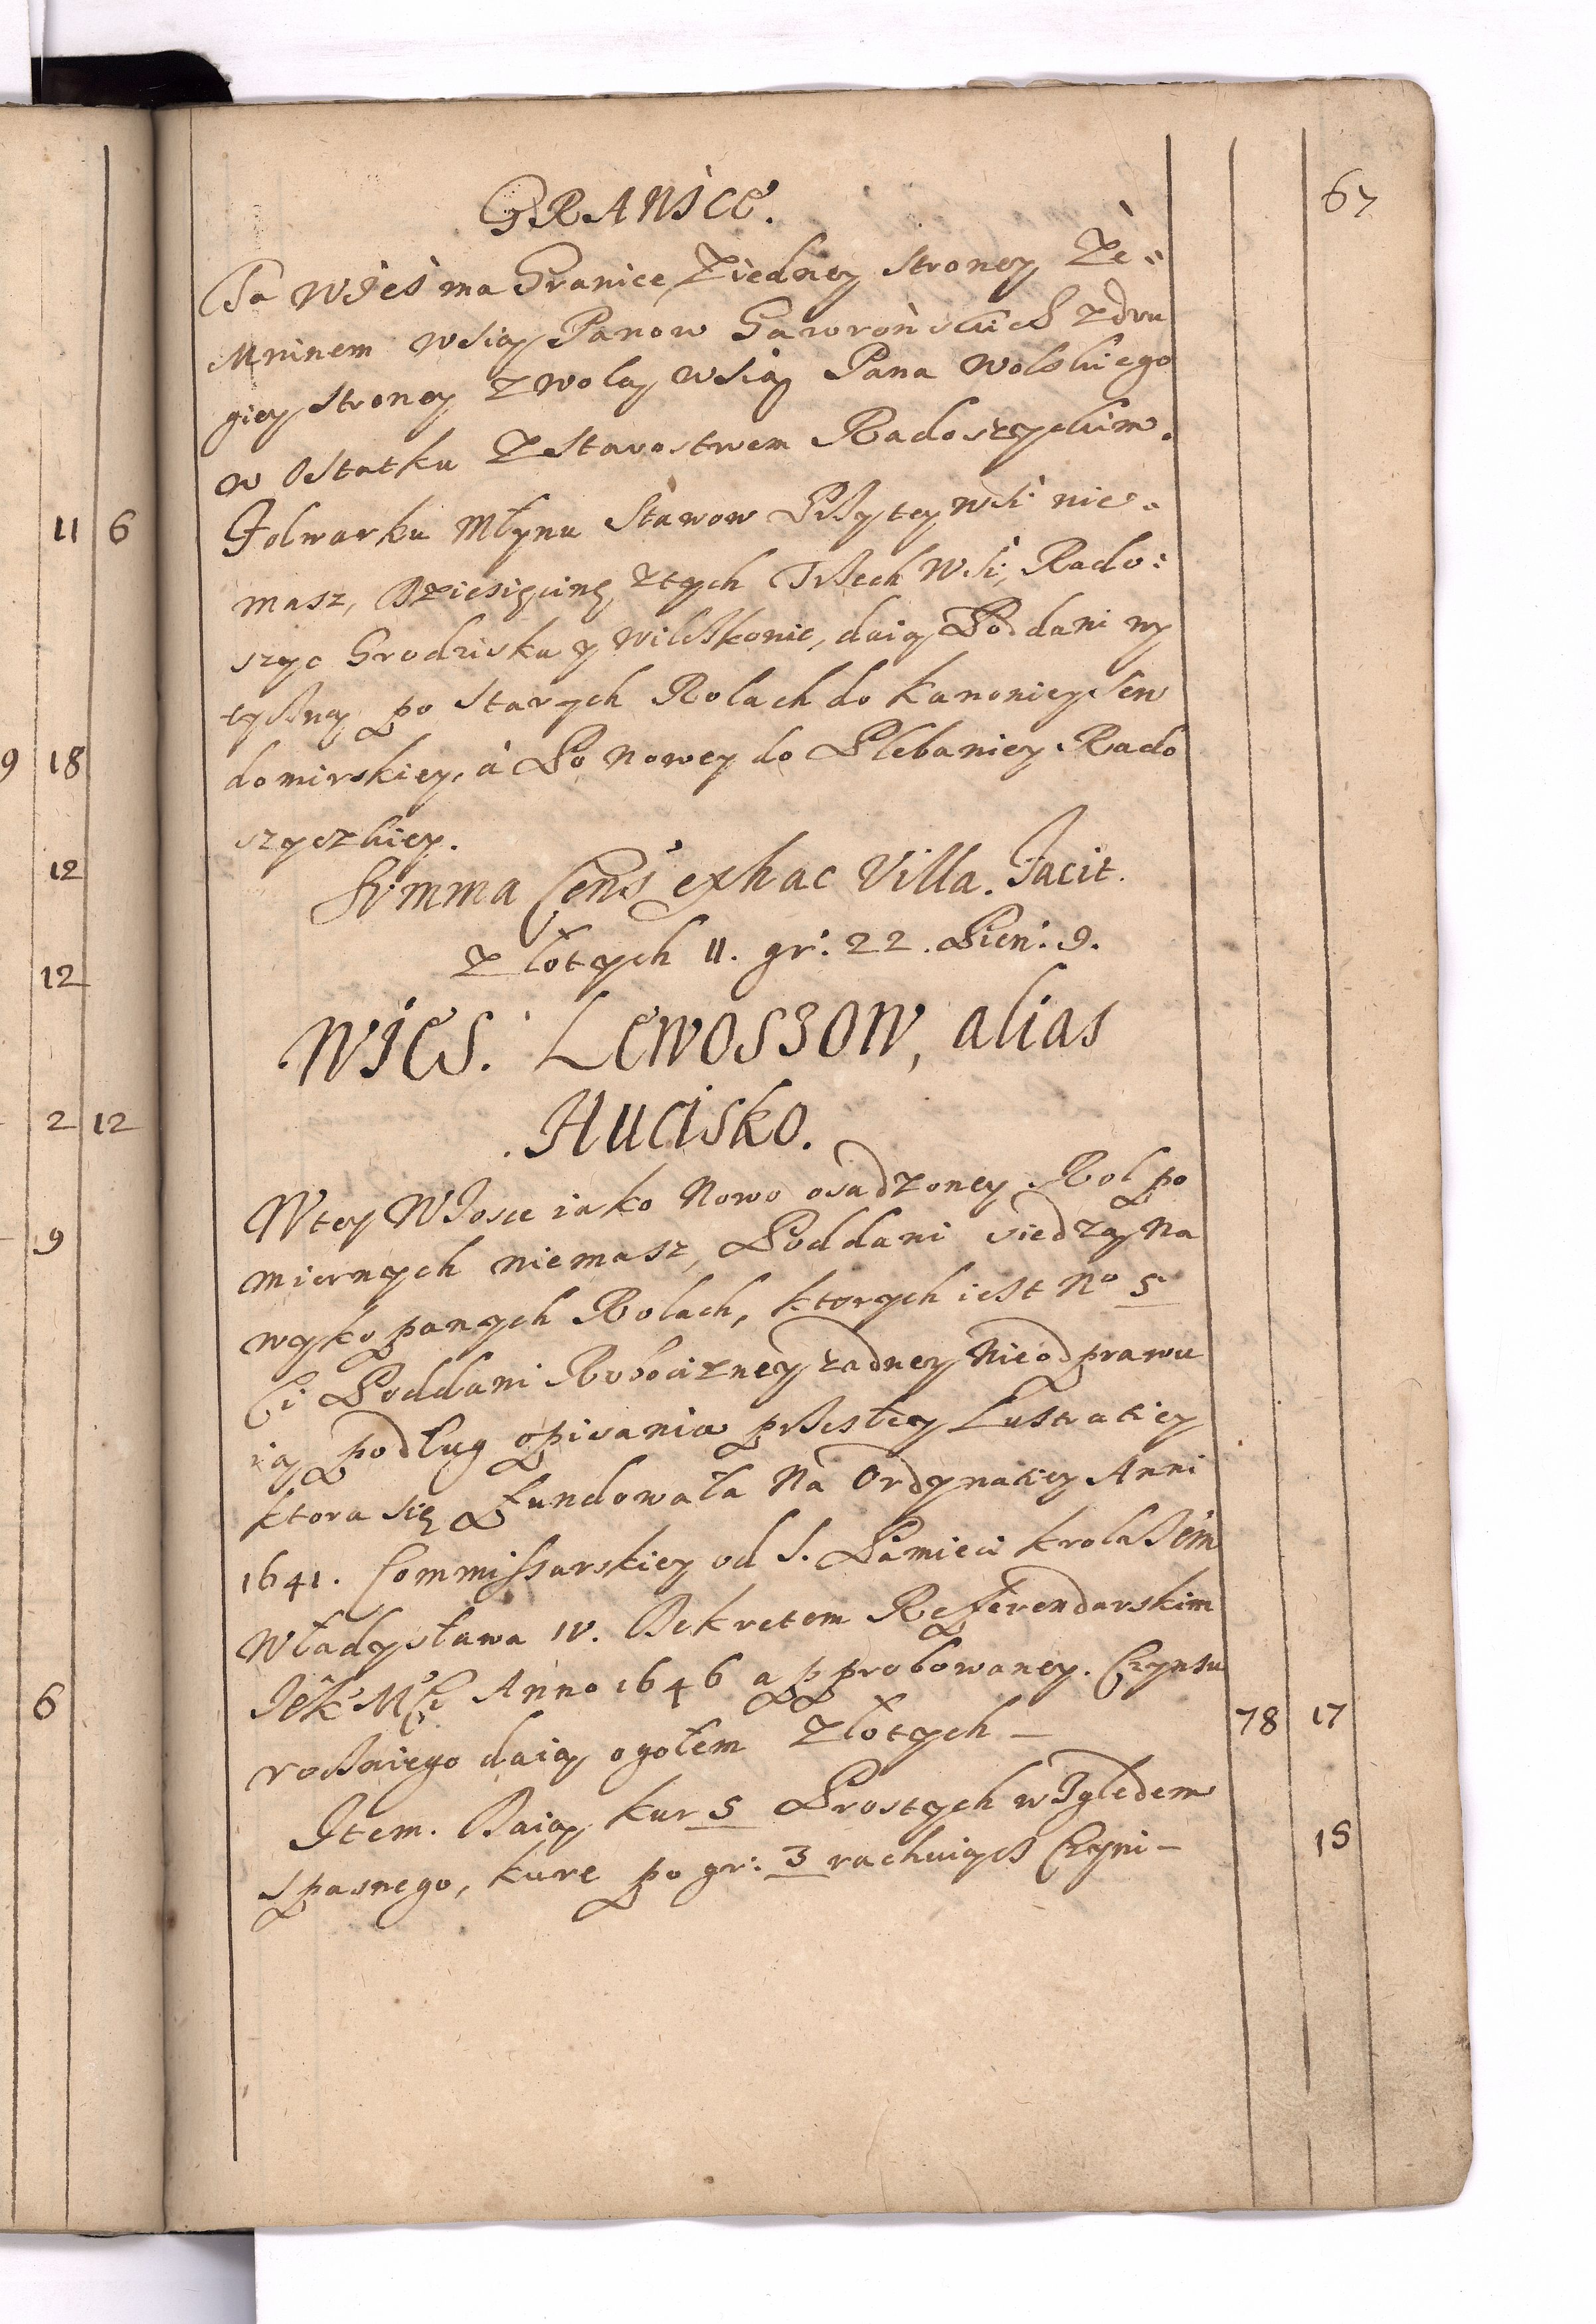 67
GRANICE.
Ta Wieś ma Granice, Ziedney strony Ze„
Mninem wsią Panow Gawrońskich z dru
giey strony z wolą wsią Pana Wolskiego
w Ostatku z Starostwem Radoszyckim.
Folwarku Młynu Stawow Przy tey wsi nie„
masz, Dziesięcinę z tych Trzech Wsi, Rado:
szyc Grodziska y Wilczkowic, daią Poddani wy
tyczną po Starych Rolach do kanoniey Sen
domirskiey, à Po nowey do Plebaniey Rado
szyczkiey.
Summa Cens' ex hac Villa. Facit.
Złotych 11. gr: 22. Pien: 9.
WIES. LEWOSZOW, alias
HUCISKO.
W tey Wiosce iako Nowo osadzoney Rol po
miernych niemasz, Poddani siedzą Na
wykopanych Rolach, ktorych iest No 5
Ci Poddani Robocizney zadney Nieodprawu
ią podług opisania przeszłey Lustratiey
ktora się fundowała Na Ordynatiey Anni
1641. Commissarskiey od S. Pamieci krola Jem
Władysława IV. Dekretem Referendarskim
JeK Mci Anno 1646 approbowaney. Czynszu
roczniego daią ogołem Złotych – 78 17
Item. Daią kur 5 Prostych względem
spasnego, kure po gr: 3 rachuiąc Czyni – 15
11 6
9 18
12
12
2 12
9
6